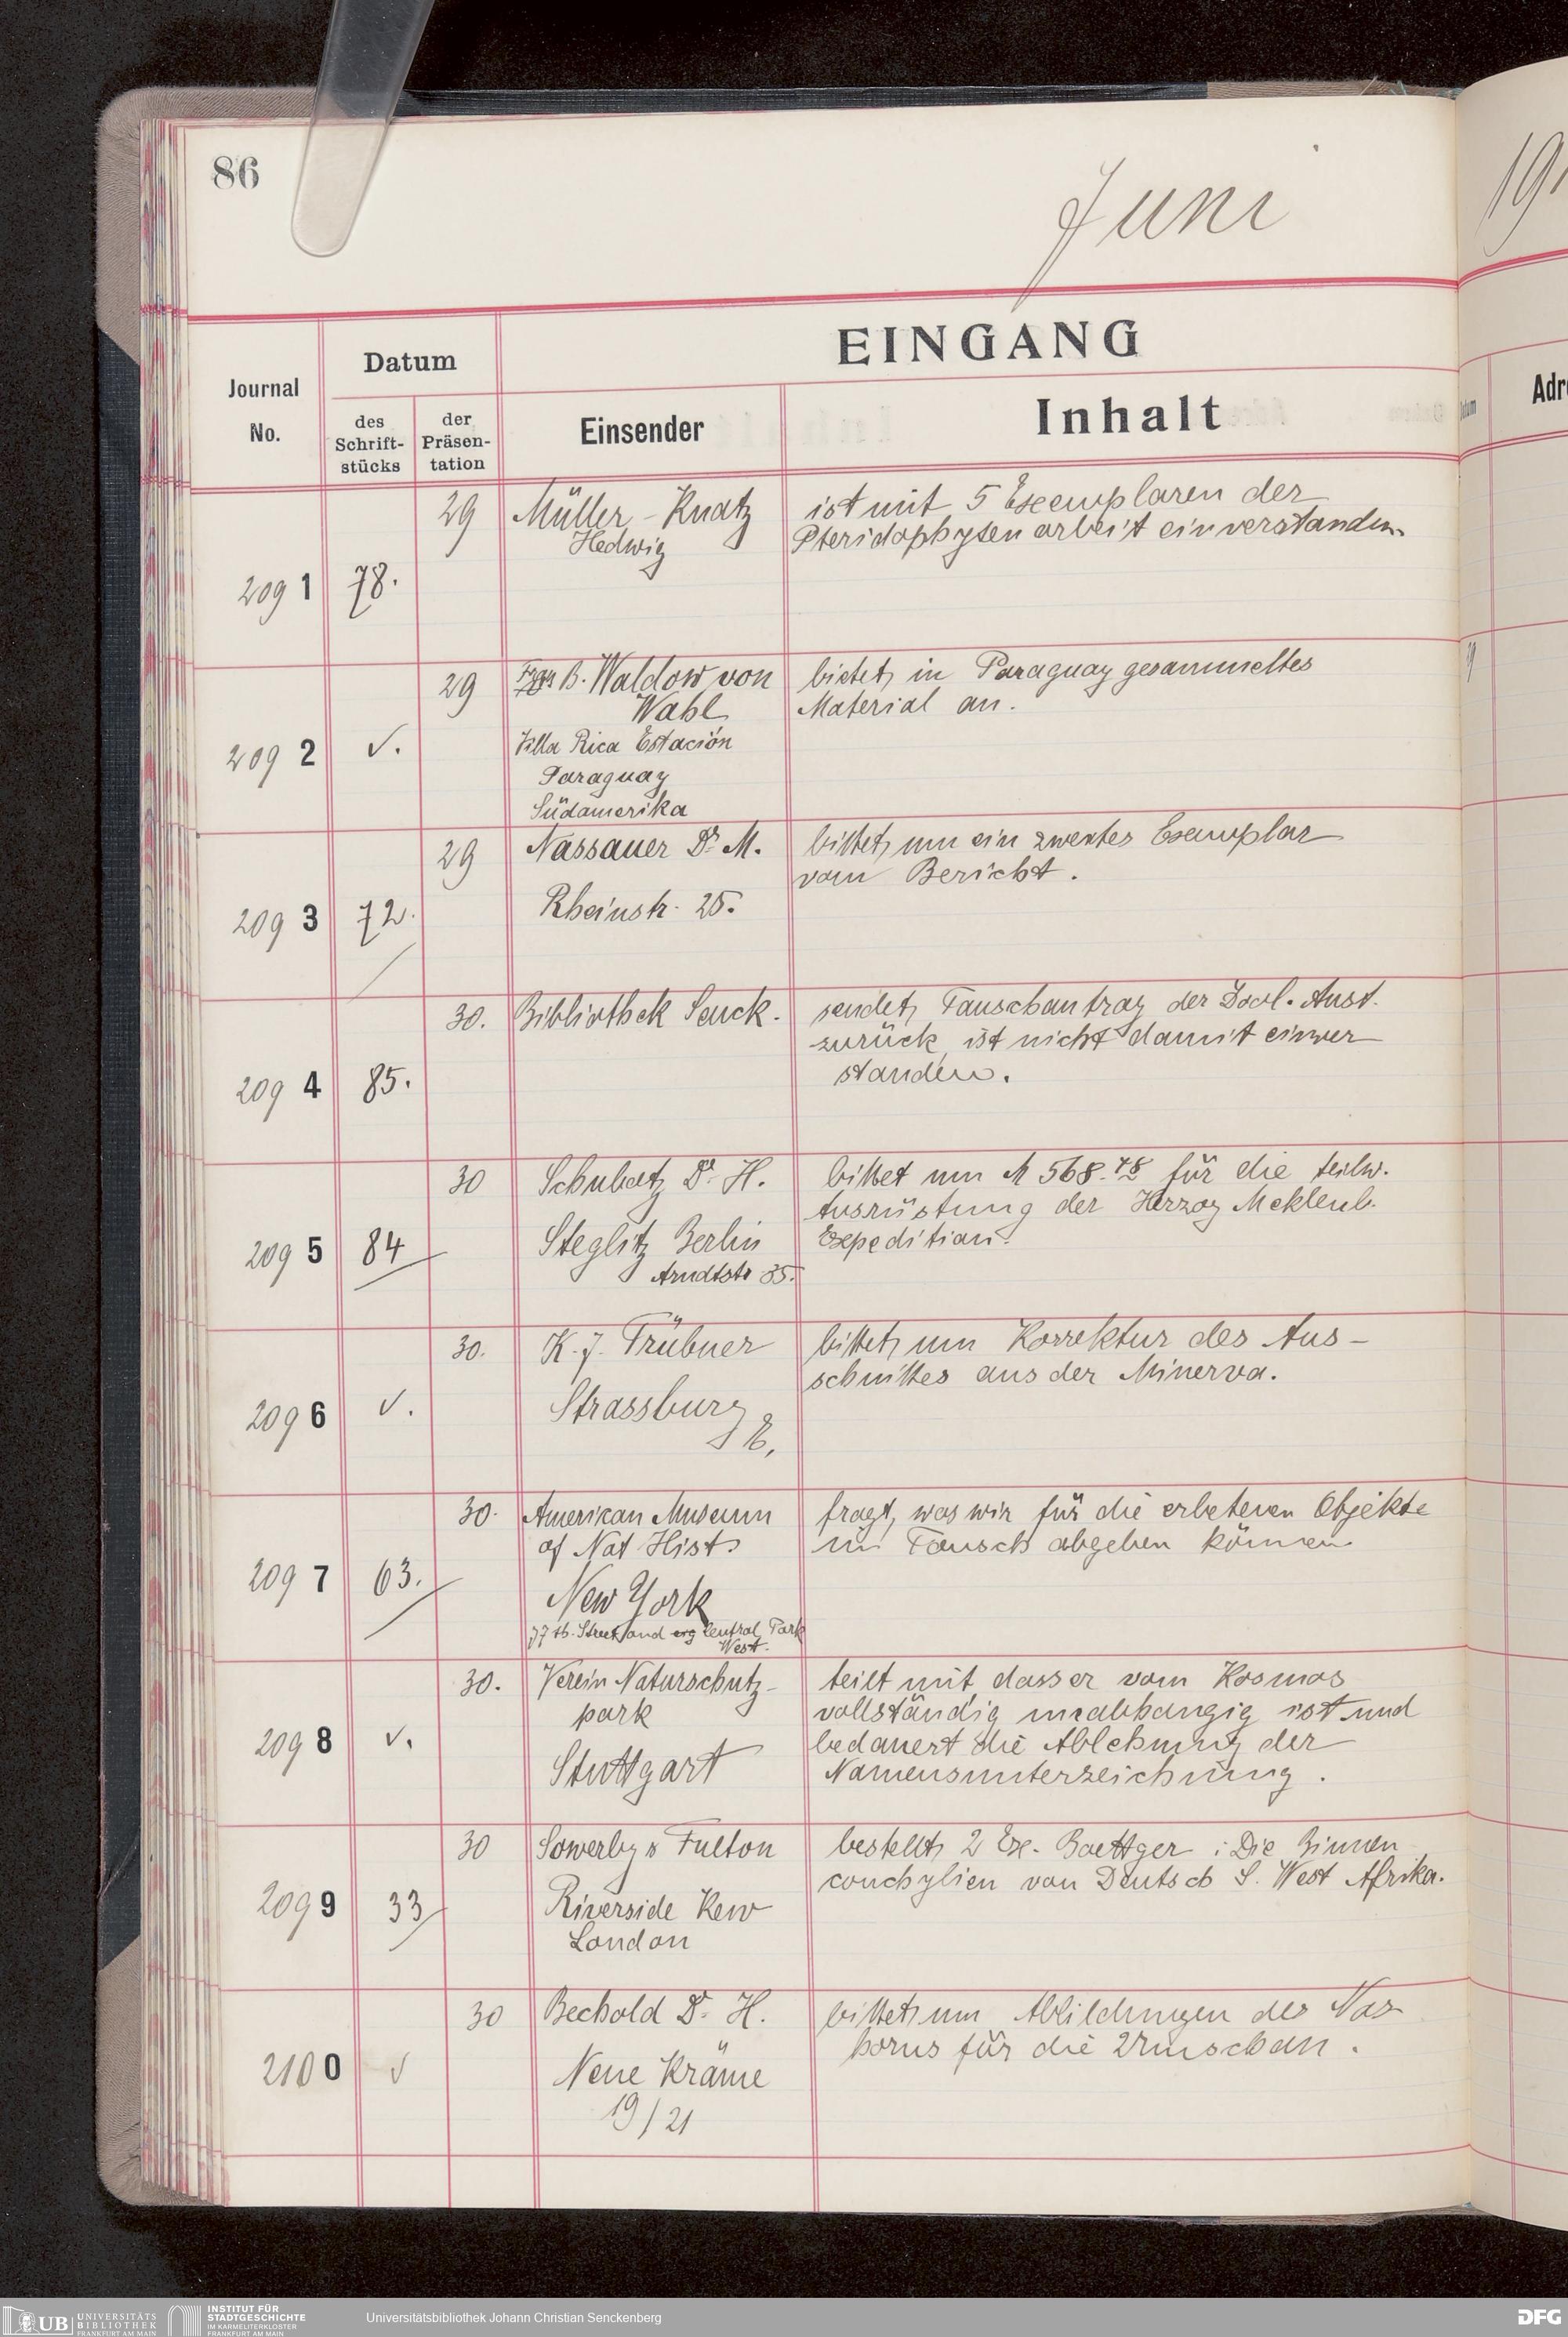 86
Juni
191
EINGANG
Journal No.
Datum
des Schrift-stücks
der Präsen-tation
Einsender
Inhalt
Adr
29 Müller-Knatz ist mit 5 Exemplaren der
Hedwig Pteridophyten arbeit einverstanden
2091 78.
29 B. Waldow von bietet in Paraguay gesammeltes
Wahl Material an.
2092 √. Villa Rica Estación
Paraguay
Südamerika
29 Nassauer Dr. M. bittet um ein zweites Exemplar
vom Bericht.
2093 72. Rheinstr. 25.
30. Bibliothek Senck. sendet Tauschantrag der Aust.
zurück, ist nicht damit einver
2094 85. standen.
30 Schubotz Dr. H. bittet um M 568.48 für die teilw.
Ausrüstung der Herzog Meklenb.
2095 84 Steglitz Berlin Expedition.
Arndtstr 35.
30. K. J. Trübner bittet um Korrektur des Aus-
schnittes aus der Minerva.
2096 √. Strassburg
E,
30. American Museum fragt, was wir für die erbetenen Objekte
of Nat Hist. im Tausch abgeben können
2097 63. New York
77 th. Street and Central Park
West.
30. Verein Naturschutz- teilt mit, dass er vom Kosmos
park vollständig unabhangig ist und
2098 √. bedauert die Ablehnung der
Stuttgart Namensunterzeichnung.
30 Sowerby & Fulton bestellt 2 Ex. Boettger: Die Binnen
conchylien von Deutsch S. West Afrika.
2099 33 Riverside Kew
London
30 Bechold Dr. H. bittet um Abbildungen des Nas
horns für die Umschau.
2100 √ Neue Kräme
19/21
UB UNIVERSITÄTS BIBLIOTHEK FRANKFURT AM MAIN
INSTITUT FÜR STADTGESCHICHTE IM KARMELITERKLOSTER FRANKFURT AM MAIN
Universitätsbibliothek Johann Christian Senckenberg
DFG